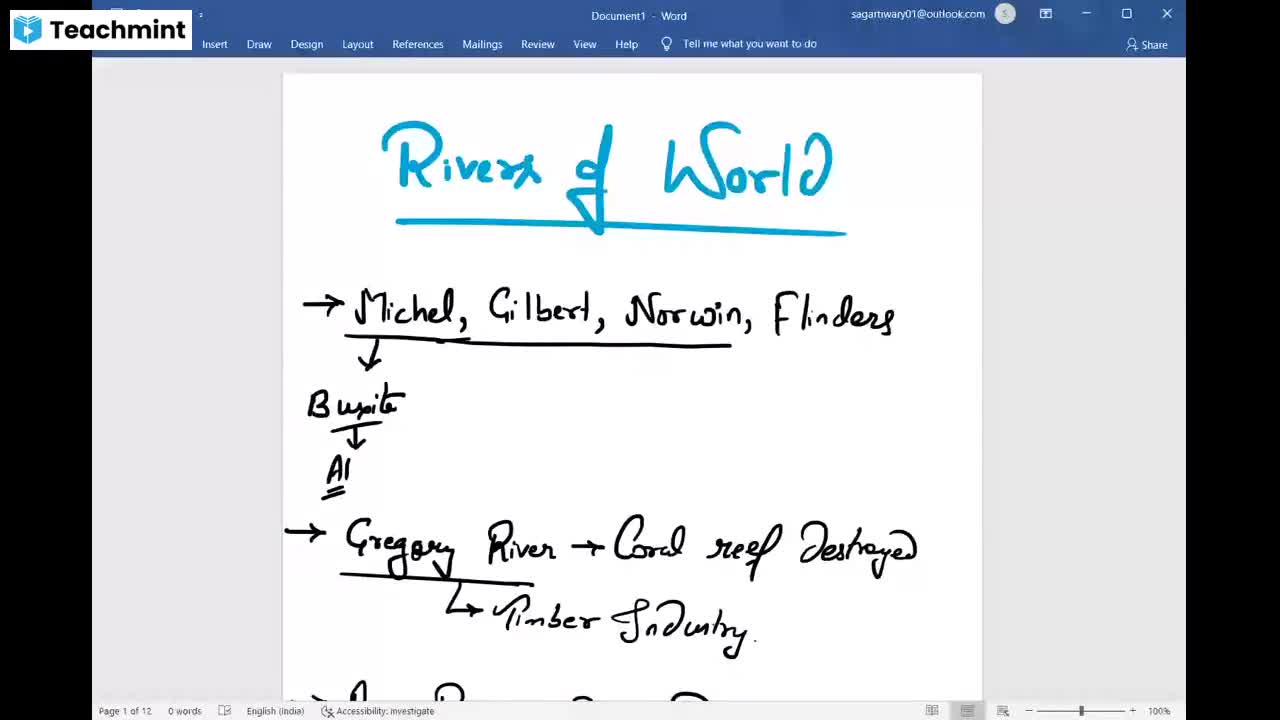 Teachmint
Document1 - Word
sagartiwary01@outlook.com
S
Insert Draw Design Layout References Mailings Review View Help Tell me what you want to do
Share
Rivers of World
→ Michel, Gilbert, Norwin, Flinders
Buxite
Al
→ Gregory River → Coral reef Destroyed
Timber Industry.
Page 1 of 12 0 words English (India) Accessibility: Investigate 100%